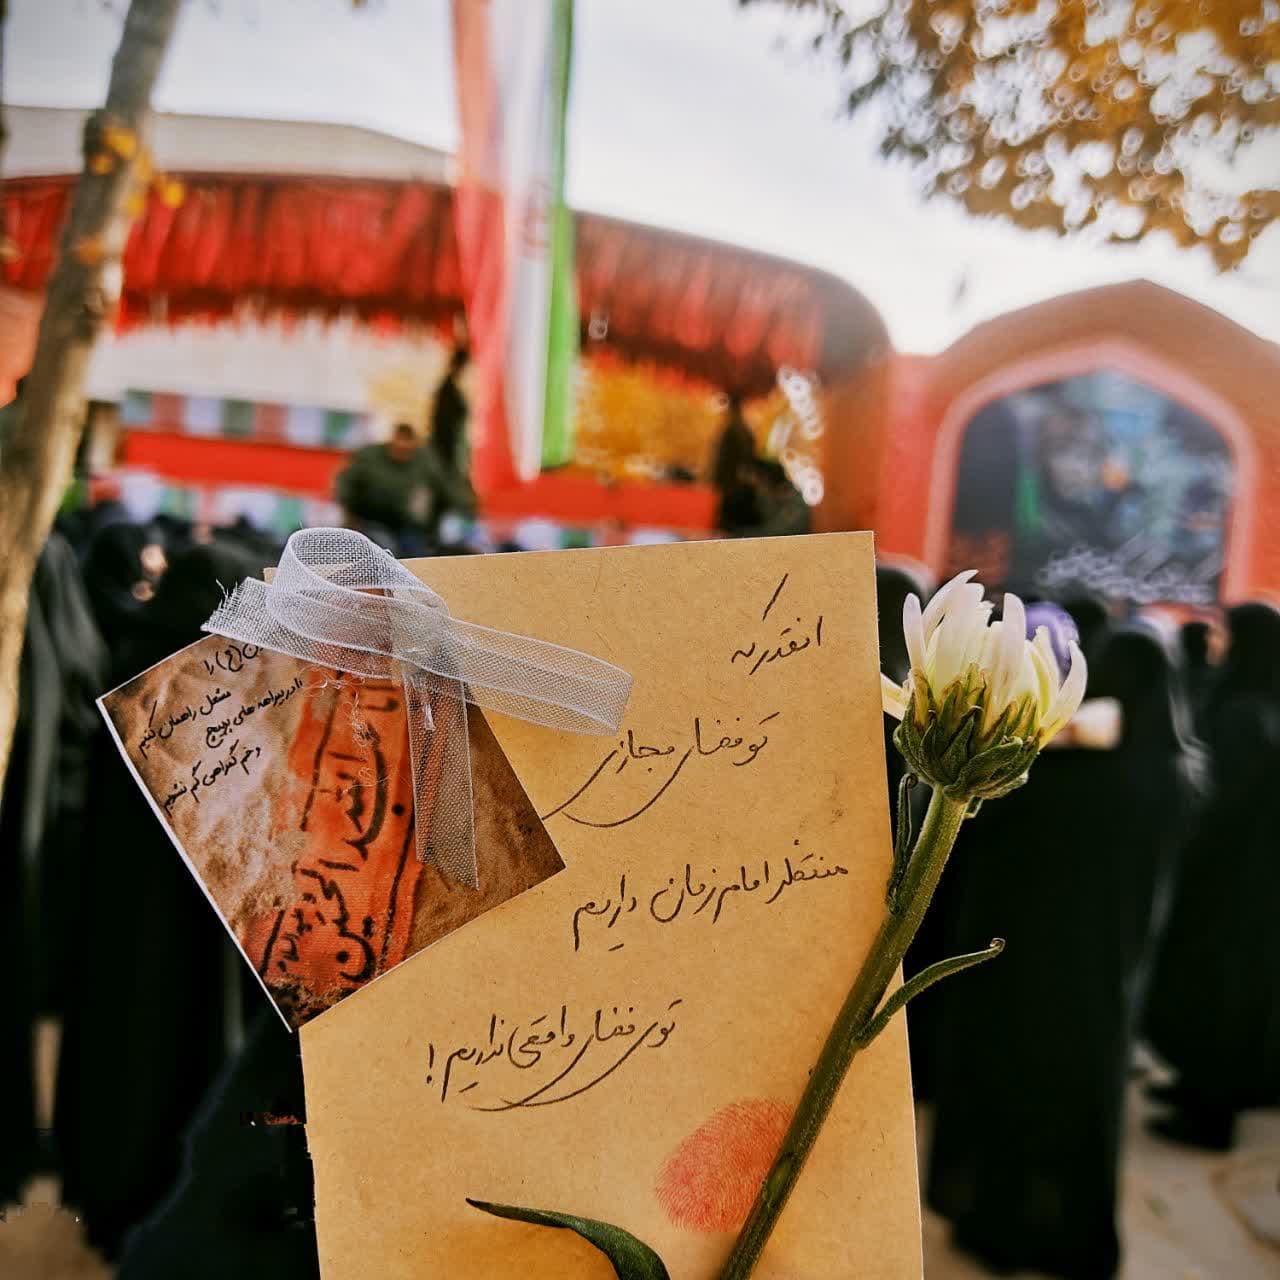 انقدر که
تو فضای مجازی
منتظر امام زمان داریم
توی فضای واقعی نداریم!
(ع) را
مشعل راهمان کنیم
تا در بیراهه های پرپیچ
و خم گمراهی گم نشیم
انا عبدالحسین